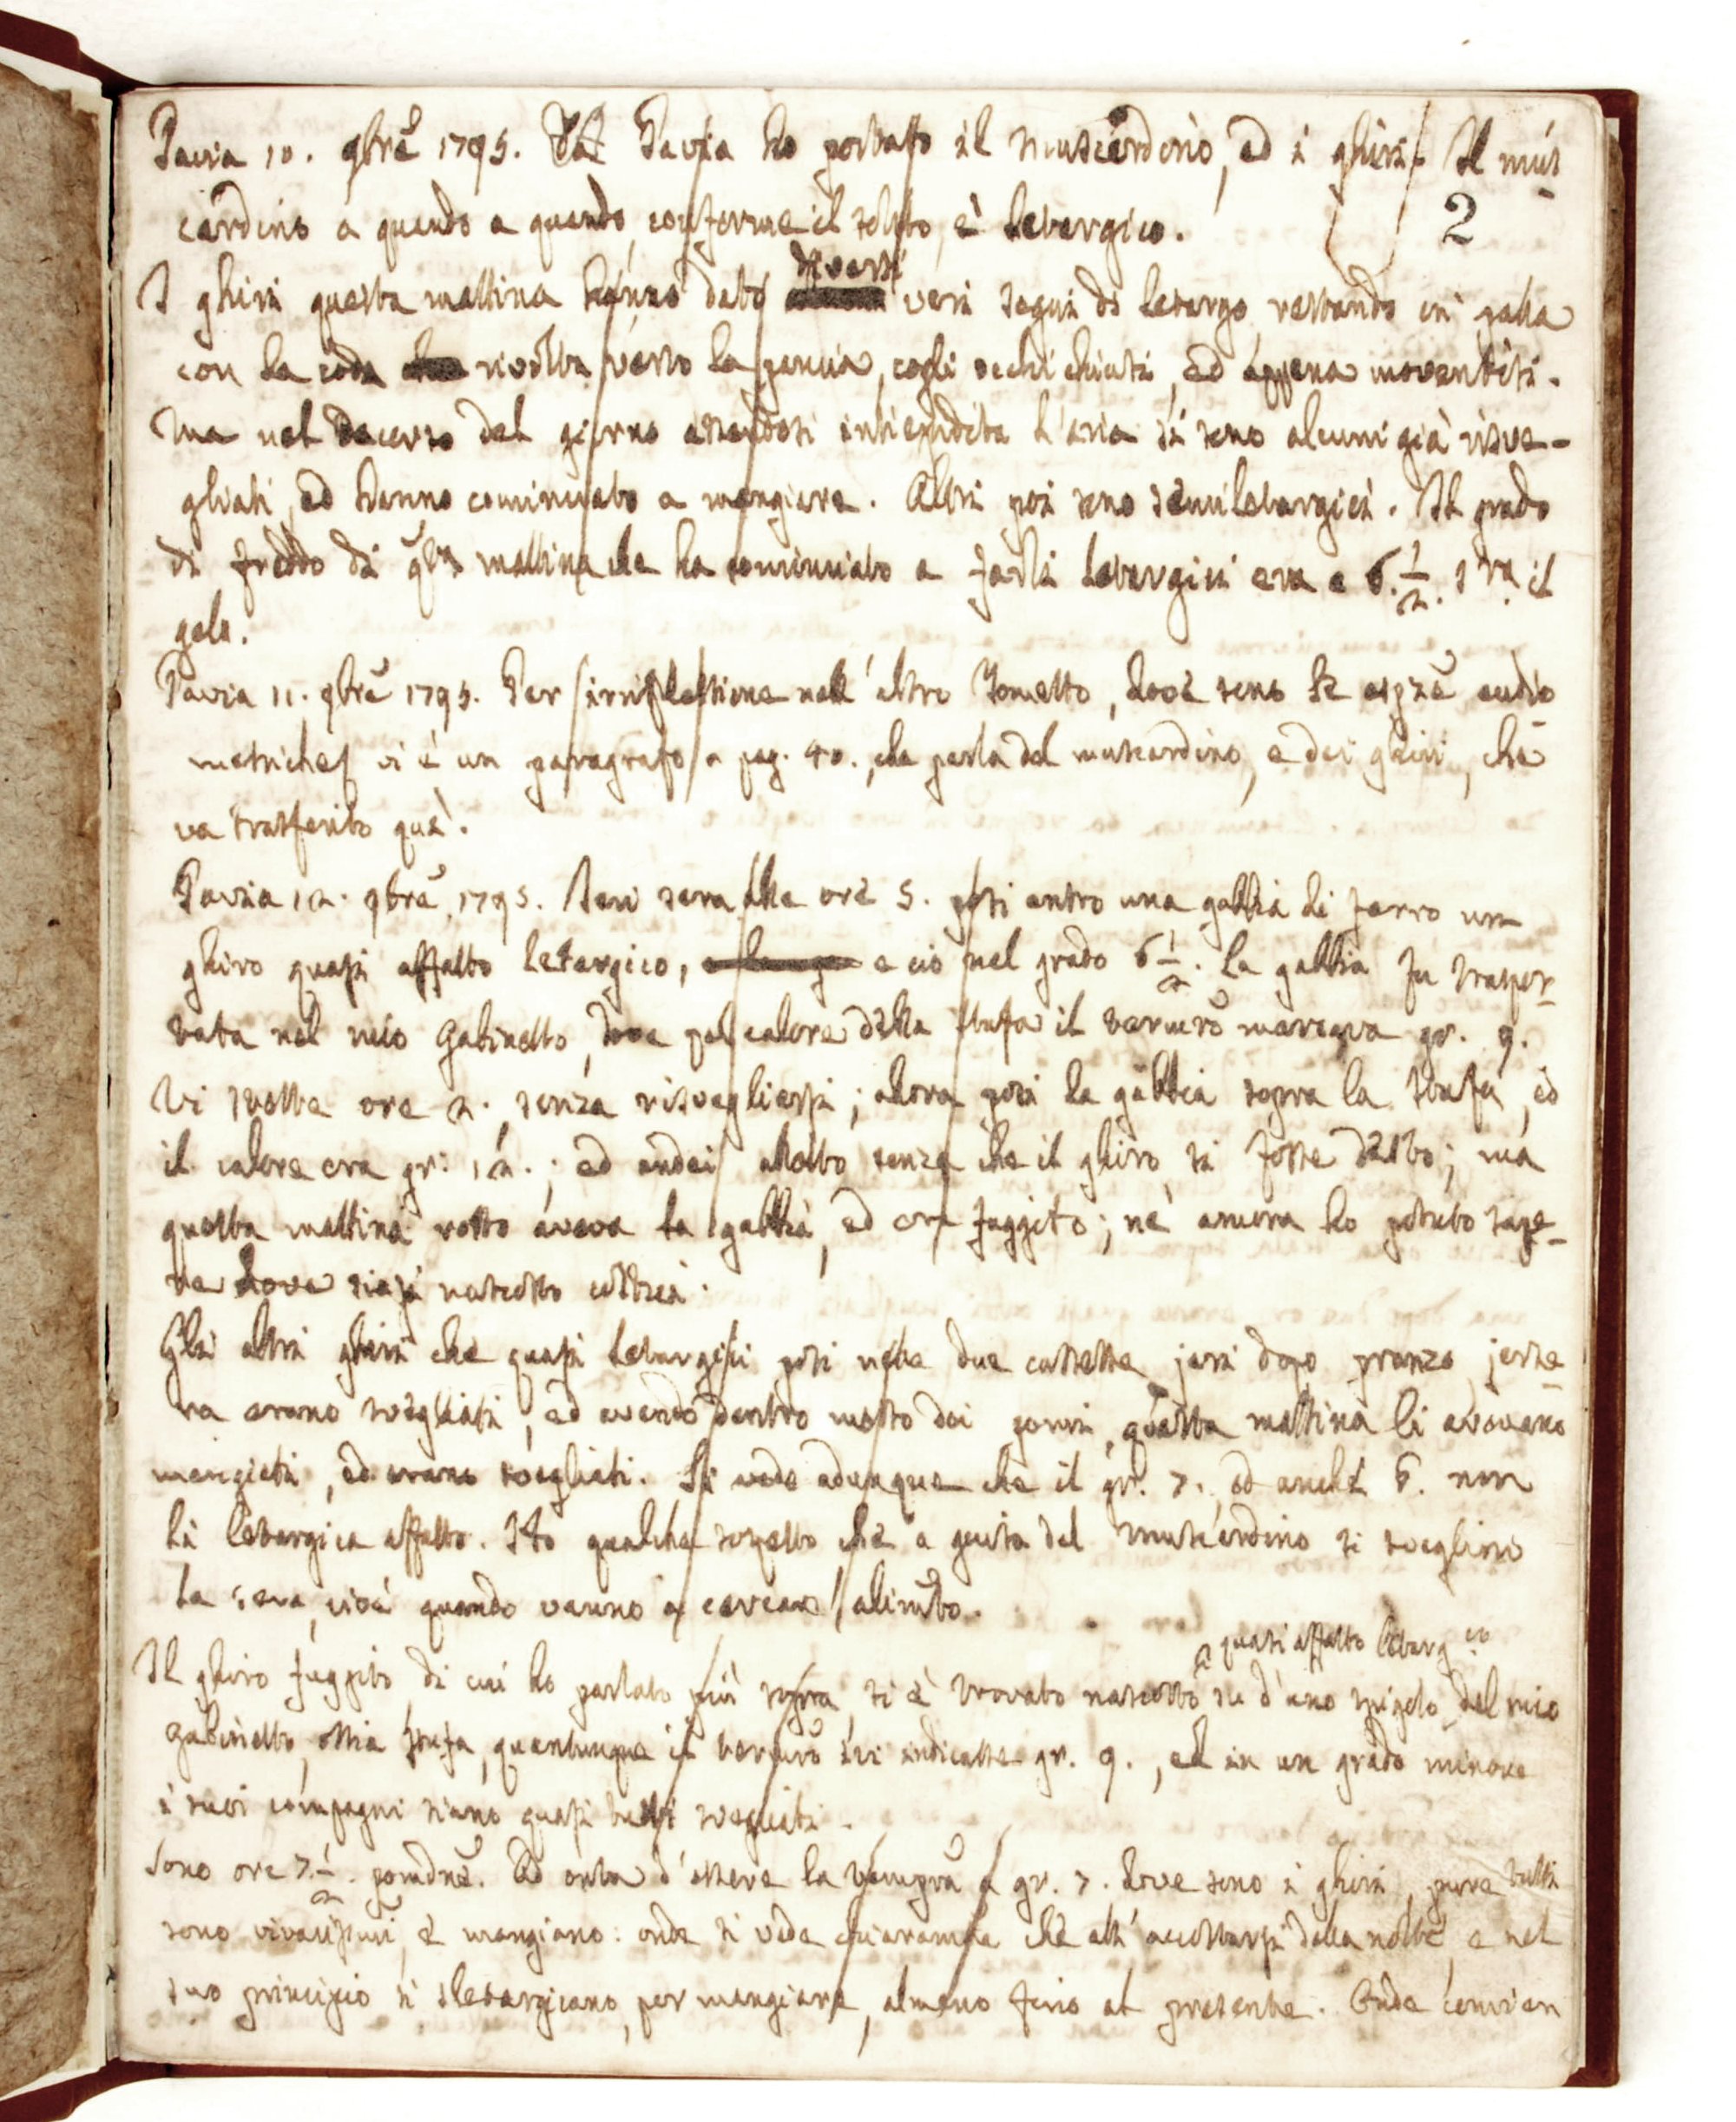 Pavia 10. 9bre 1795. Da Pavia ho portato il muscardino, ed i ghiri. Il mus
2
cardino a quando a quando, conforme il solito, è letargico.
diversi
I ghiri questa mattina hanno dato veri segni di letargo, restando in palla
con la coda rivolta verso la pancia, cogli occhi chiusi, ed appena moventisi.
Ma nel decorso del giorno essendosi intiepidita l'aria si sono alcuni già risve-
gliati, ed hanno cominciato a mangiare. Altri poi sono semiletargici. Il grado
di freddo di qta mattina che ha cominciato a farli letargici era a 6. 1/2. sra il
gelo.
Pavia 11. 9bre 1795. Per inriflessione nell'altro Tometto, dove sono le espze eudio
metriche vi è un paragrafo a pag. 40., che parla del muscardino, e dei ghiri, che
va trasferito quà.
Pavia 12. 9bre 1795. Jeri sera alle ore 5. posi entro una gabbia di ferro un
ghiro quasi affatto letargico, e ciò nel grado 6 1/2. La gabbia fu traspor-
tata nel mio Gabinetto, dove pel calore della stufa il termro marcava gr. 9.
Vi stette ore 2. senza risvegliarsi; allora posi la gabbia sopra la stufa, ed
il calore era gr: 12.; ed andai a letto senza che il ghiro si fosse desto; ma
questa mattina rotto aveva la gabbia, ed era fuggito; nè ancora ho potuto sape-
re dove siasi nascosto costui.
Gli altri ghiri che quasi letargici posi nelle due cassette jeri dopo pranzo, jerse-
ra erano svegliati, ed avendo dentro messo dei pomi, questa mattina li avevano
mangiati, ed erano svegliati. Si vede adunque che il gr. 7. ed anche 6. non
li letargica affatto. Ho qualche sospetto che a guisa del muscardino si sveglino
la sera, cioè quando vanno a cercare alimto.
quasi affatto letargico
Il ghiro fuggito, di cui ho parlato più sopra, si è trovato nascosto su d'uno spigolo del mio
Gabinetto, ossia stufa, quantunque il termro ivi indicasse gr. 9., ed in un grado minore
i suoi compagni siano quasi tutti svegliati.
Sono ore 7. 1/2. pomdne. Ad onta d'essere la tempra a gr. 7. dove sono i ghiri, pure tutti
sono vivacissimi, e mangiano: onde si vede chiaramte che all'accostarsi della notte, e nel
suo principio si sletargicano, per mangiare, almeno fino al presente. Onde convien